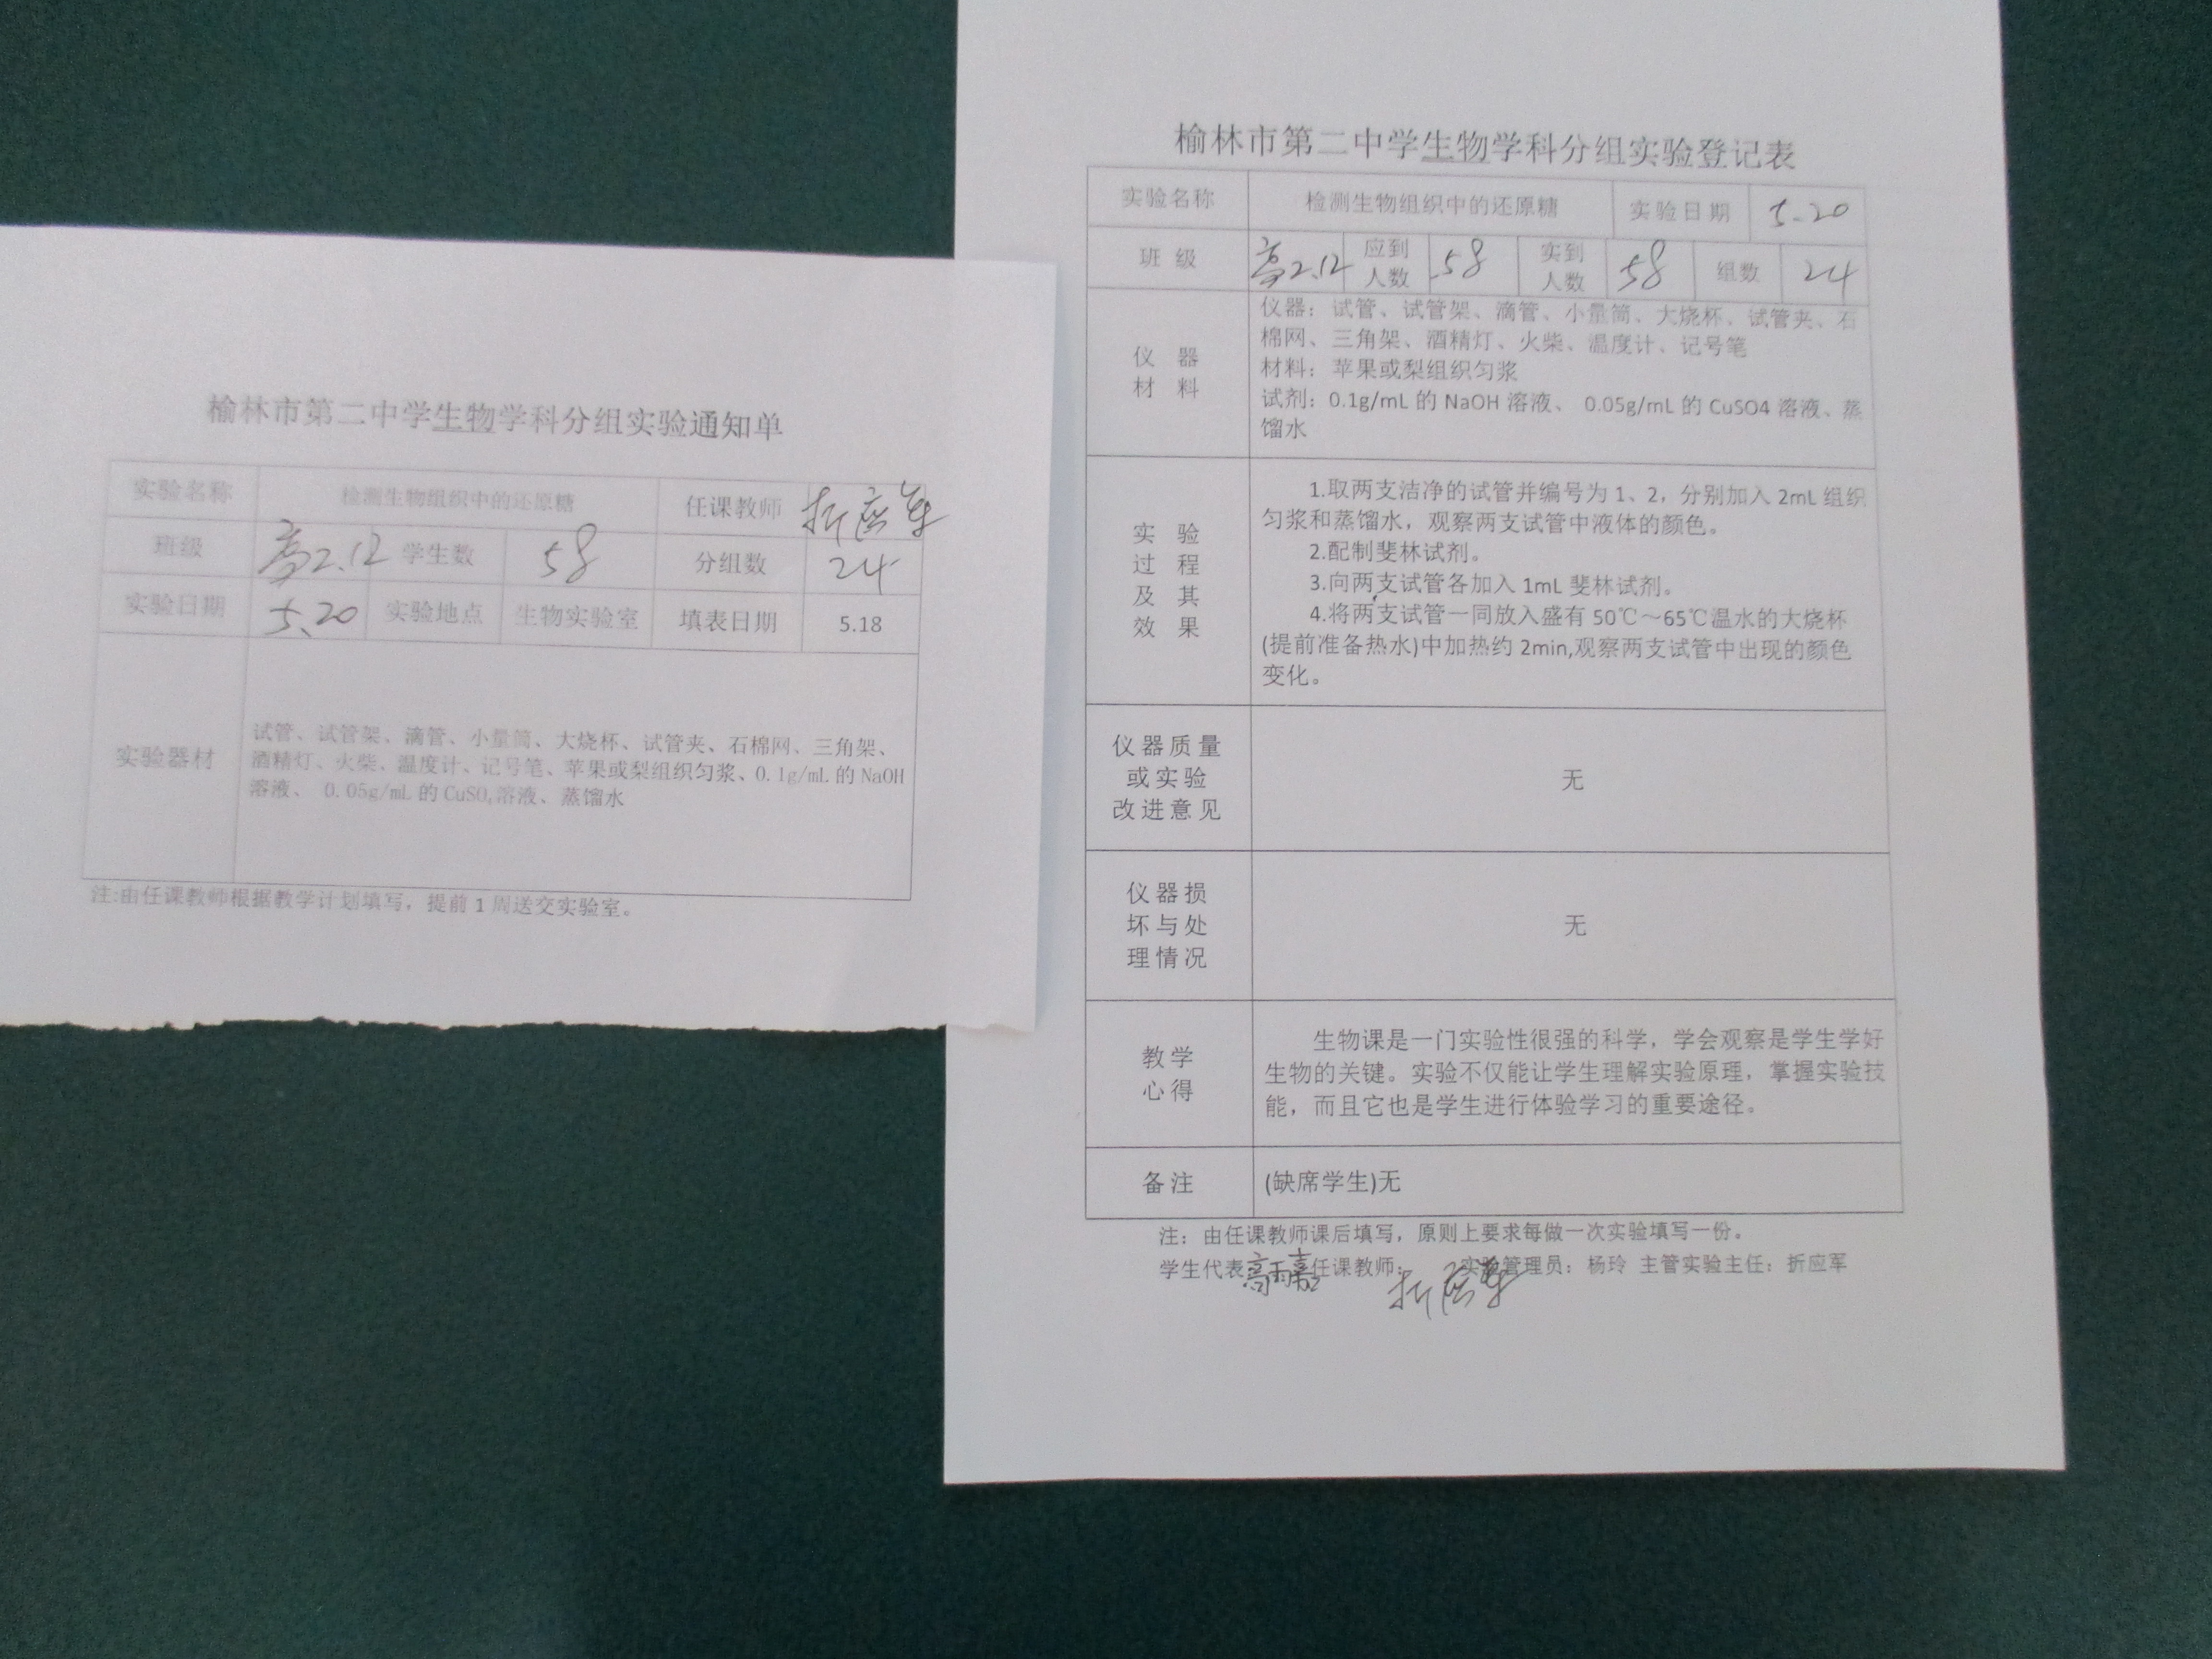 榆林市第二中学生物学科分组实验通知单
实验名称 检测生物组织中的还原糖 任课教师 折应军
班级 高2.12 学生数 58 分组数 24
实验日期 5.20 实验地点 生物实验室 填表日期 5.18
实验器材
试管、试管架、滴管、小量筒、大烧杯、试管夹、石棉网、三角架、
酒精灯、火柴、温度计、记号笔、苹果或梨组织匀浆、0.1g/mL 的 NaOH
溶液、 0.05g/mL 的 CuSO₄溶液、蒸馏水
注:由任课教师根据教学计划填写，提前 1 周送交实验室。
榆林市第二中学生物学科分组实验登记表
实验名称 检测生物组织中的还原糖 实验日期 5.20
班 级 高2.12 应到人数 58 实到人数 58 组数 24
仪 器
材 料
仪器：试管、试管架、滴管、小量筒、大烧杯、试管夹、石
棉网、三角架、酒精灯、火柴、温度计、记号笔
材料：苹果或梨组织匀浆
试剂：0.1g/mL 的 NaOH 溶液、 0.05g/mL 的 CuSO4 溶液、蒸
馏水
实 验
过 程
及 其
效 果
1.取两支洁净的试管并编号为 1、2，分别加入 2mL 组织
匀浆和蒸馏水，观察两支试管中液体的颜色。
2.配制斐林试剂。
3.向两支试管各加入 1mL 斐林试剂。
4.将两支试管一同放入盛有 50℃～65℃温水的大烧杯
(提前准备热水)中加热约 2min,观察两支试管中出现的颜色
变化。
仪器质量
或实验
改进意见
无
仪器损
坏与处
理情况
无
教学
心得
生物课是一门实验性很强的科学，学会观察是学生学好
生物的关键。实验不仅能让学生理解实验原理，掌握实验技
能，而且它也是学生进行体验学习的重要途径。
备注 (缺席学生)无
注：由任课教师课后填写，原则上要求每做一次实验填写一份。
学生代表 高雨嘉 任课教师： 折应军 实验管理员：杨玲 主管实验主任：折应军